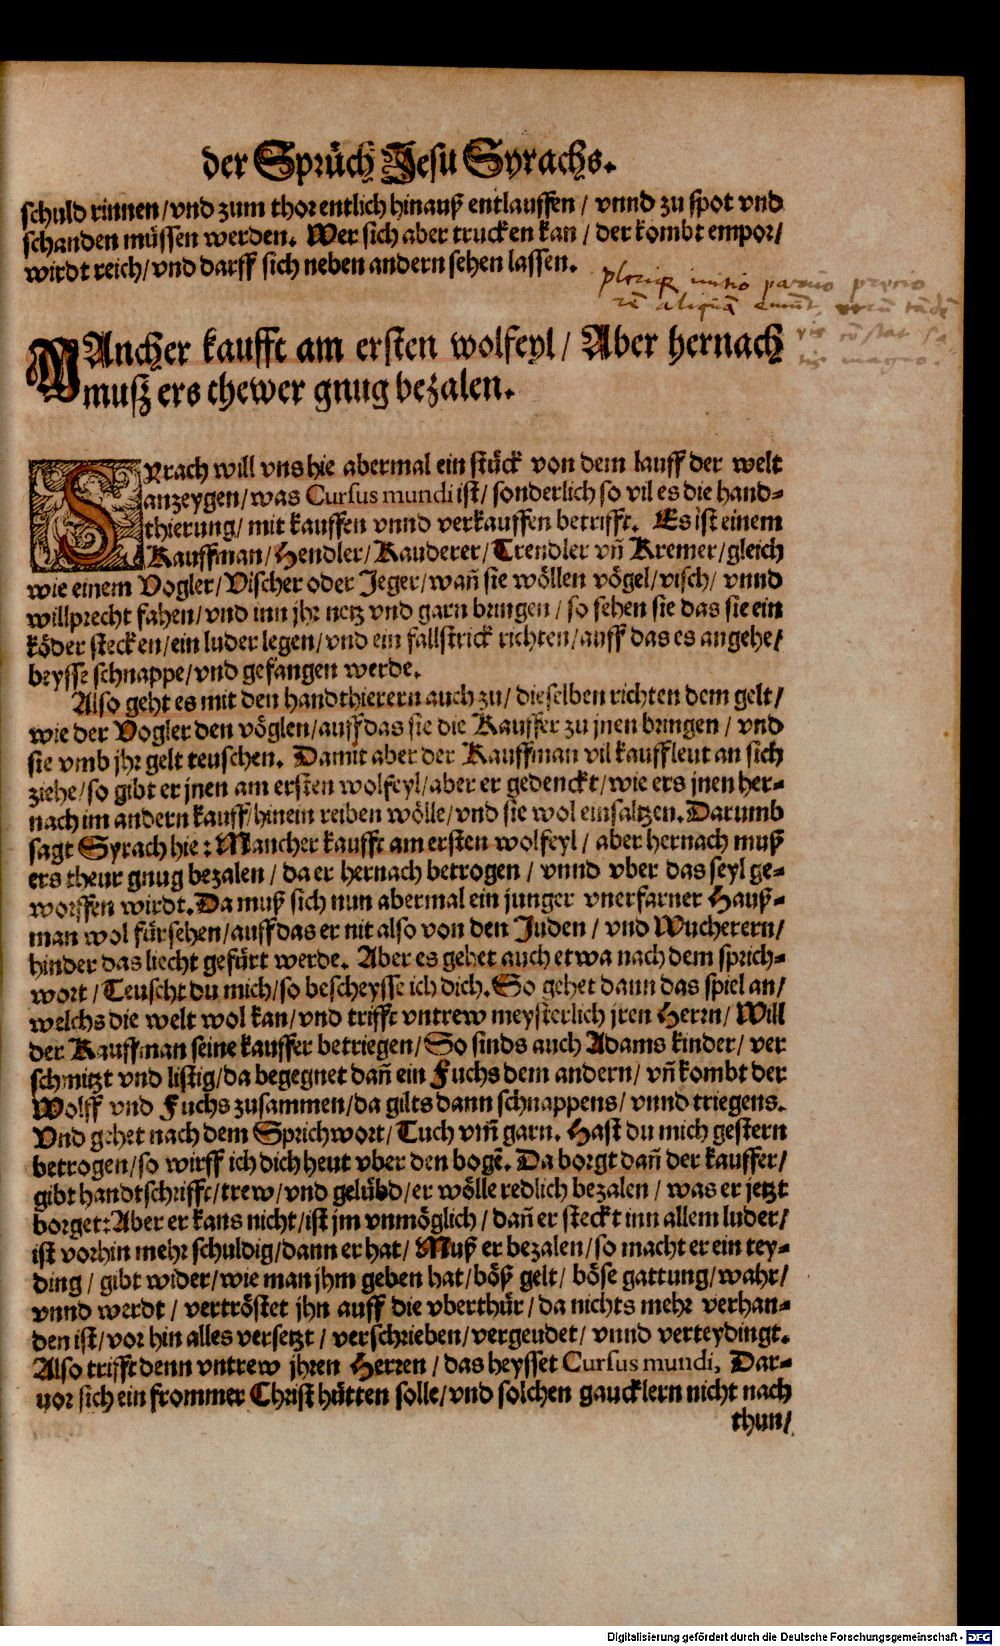 der Sprüch Jesu Syrachs.
schuld rinnen / vnd zum thor entlich hinauß entlauffen / vnnd zu spot vnd
schanden müssen werden. Wer sich aber trucken kan / der kombt empor /
wirdt reich / vnd darff sich neben andern sehen lassen.
pleriq̃ initio paruo precio
rẽ aliquã emũt, verũ tãdẽ
vis cõstat sa-
tis magno.
MAncher kaufft am ersten wolfeyl / Aber hernach
muß ers thewer gnug bezalen.
SYrach will vns hie abermal ein stück von dem lauff der welt
anzeygen / was Cursus mundi ist / sonderlich so vil es die hand-
thierung / mit kauffen vnnd verkauffen betrifft. Es ist einem
Kauffman / Hendler / Kauderer / Trendler vñ Kremer / gleich
wie einem Vogler / Vischer oder Jeger / wañ sie wöllen vögel / visch / vnnd
willprecht fahen / vnd inn jhr netz vnd garn bringen / so sehen sie das sie ein
köder stecken / ein luder legen / vnd ein fallstrick richten / auff das es angehe /
beysse schnappe / vnd gefangen werde.
Also geht es mit den handthierern auch zu / dieselben richten dem gelt /
wie der Vogler den vöglen / auff das sie die Kauffer zu jnen bringen / vnd
sie vmb jhr gelt teuschen. Damit aber der Kauffman vil kauffleut an sich
ziehe / so gibt er jnen am ersten wolfeyl / aber er gedenckt / wie ers jnen her-
nach im andern kauff / hinein reiben wölle / vnd sie wol einsaltzen. Darumb
sagt Syrach hie : Mancher kaufft am ersten wolfeyl / aber hernach muß
ers theur gnug bezalen / da er hernach betrogen / vnnd vber das seyl ge-
worffen wirdt. Da muß sich nun abermal ein junger vnerfarner Hauß-
man wol fürsehen / auff das er nit also von den Juden / vnd Wucherern /
hinder das liecht gefürt werde. Aber es gehet auch etwa nach dem sprich-
wort / Teuscht du mich / so bescheysse ich dich. So gehet dann das spiel an /
welchs die welt wol kan / vnd trifft vntrew meysterlich jren Herrn / Will
der Kauffman seine kauffer betriegen / So sinds auch Adams kinder / ver
schmitzt vnd listig / da begegnet dañ ein Fuchs dem andern / vñ kombt der
Wolff vnd Fuchs zusammen / da gilts dann schnappens / vnnd triegens.
Vnd gehet nach dem Sprichwort / Tuch vm̃ garn. Hast du mich gestern
betrogen / so wirff ich dich heut vber den bogẽ. Da borgt dañ der kauffer /
gibt handtschrifft / trew / vnd gelübd / er wölle redlich bezalen / was er jetzt
borget : Aber er kans nicht / ist jm vnmöglich / dañ er steckt inn allem luder /
ist vorhin mehr schuldig / dann er hat / Muß er bezalen / so macht er ein tey-
ding / gibt wider / wie man jhm geben hat / böß gelt / böse gattung / wahr /
vnnd werdt / vertröstet jhn auff die vberthür / da nichts mehr verhan-
den ist / vor hin alles versetzt / verschrieben / vergeudet / vnnd verteydingt.
Also trifft denn vntrew jhren Herren / das heysset Cursus mundi, Dar-
uor sich ein frommer Christ hütten solle / vnd solchen gaucklern nicht nach
thun /
Digitalisierung gefördert durch die Deutsche Forschungsgemeinschaft - DFG